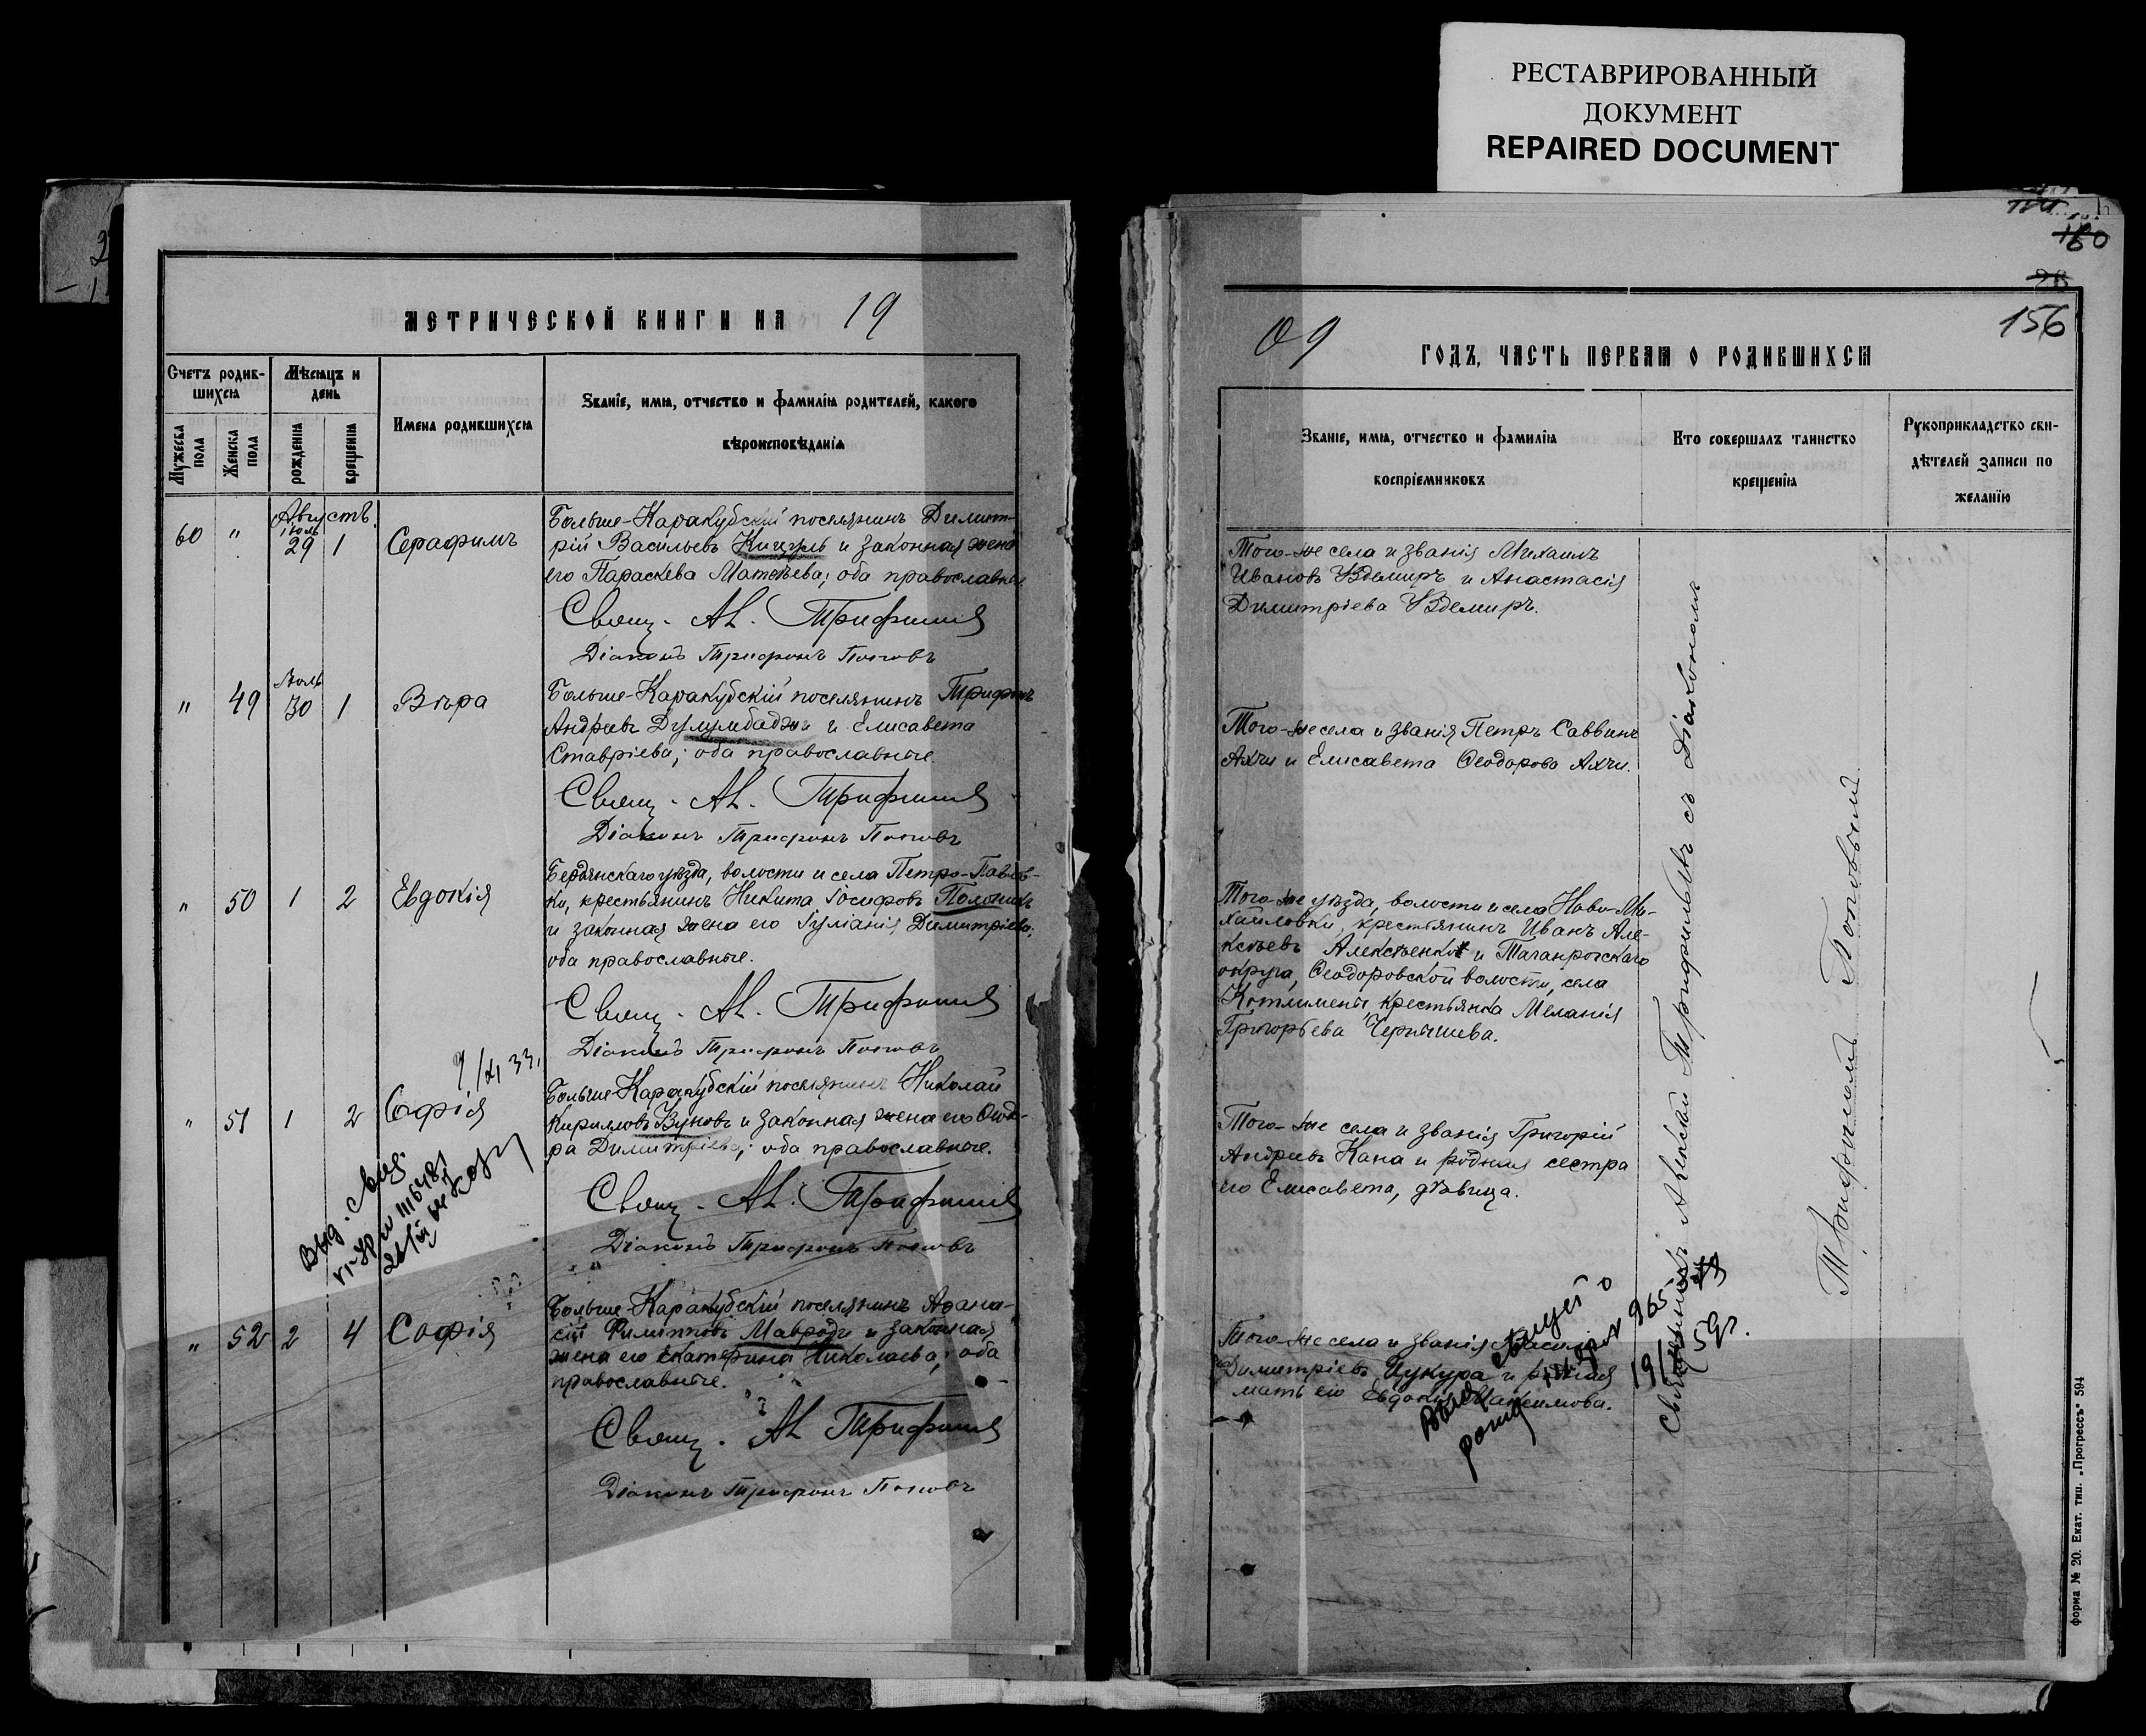 РЕСТАВРИРОВАННЫЙ
ДОКУМЕНТ
REPAIRED DOCUMENT
МЕТРИЧЕСКОЙ КНИГИ НА 19
Счетъ родив-
шихся
Мѣсяцъ и
день
Мужеска
пола
Женска
пола
рожденія
крещенія
Имена родившихся
Званіе, имя, отчество и фамилія родителей, какого
вѣроисповѣданія
Августъ.
60 " Іюль 29 1 Серафимъ
Больше-Каракубскій поселянинъ Димит-
рій Васильевъ и законная жена
его Параскева Матѳѣева; оба православные
Свящ. Ал. Трифиліевъ
Діаконъ Трифонъ Поповъ
" 49 Іюль 30 1 Вѣра
Больше-Каракубскій поселянинъ Трифонъ
Андреевъ Дулумбаджи и Елисавета
Ставріева; оба православные.
Свящ. Ал. Трифиліевъ
Діаконъ Трифонъ Поповъ
" 50 1 2 Евдокія
Бердянскаго уѣзда, волости и села Петро-Павлов-
ки, крестьянинъ Никита Іосифовъ
и законная жена его Іуліанія Димитріева;
оба православные.
Свящ. Ал. Трифиліевъ
Діаконъ Трифонъ Поповъ
" 51 1 2 Софія
Больше-Каракубскій поселянинъ Николай
Кирилловъ и законная жена его Ѳеодо-
ра Димитріева; оба православные.
Свящ. Ал. Трифиліевъ
Діаконъ Трифонъ Поповъ
Выд. свид.
" 52 2 4 Софія
Больше-Каракубскій поселянинъ Аѳана-
сій Филипповъ Мавроди и законная
жена его Екатерина Николаева; оба
православные.
Свящ. Ал. Трифиліевъ
Діаконъ Трифонъ Поповъ
156
09 ГОДЪ, ЧАСТЬ ПЕРВАЯ О РОДИВШИХСЯ
Званіе, имя, отчество и фамилія
воспріемниковъ
Кто совершалъ таинство
крещенія
Рукоприкладство сви-
дѣтелей записи по
желанію
Того-же села и званія Михаилъ
Ивановъ Узdемиръ и Анастасія
Димитріева Узdемиръ.
Того-же села и званія Петръ Саввинъ
Ахчи и Елисавета Ѳеодорова Ахчи.
Того-же уѣзда, волости и села Ново-Ми-
хайловки, крестьянинъ Иванъ Але-
ксѣевъ Алексѣенко и Таганрогскаго
округа, Ѳеодоровской волости, села
крестьянка Меланія
Григорьева Чернышева.
Того-же села и званія Григорій
Андреевъ Кана и родная сестра
его Елисавета, дѣвица.
Того-же села и званія
Димитріевъ Цукура и родная
мать его Евдокія Максимова.
Священникъ Алексѣй Трифильевъ съ Діакономъ
Трифономъ Поповымъ
Форма № 20. Екат. тип. „Прогрессъ" 594